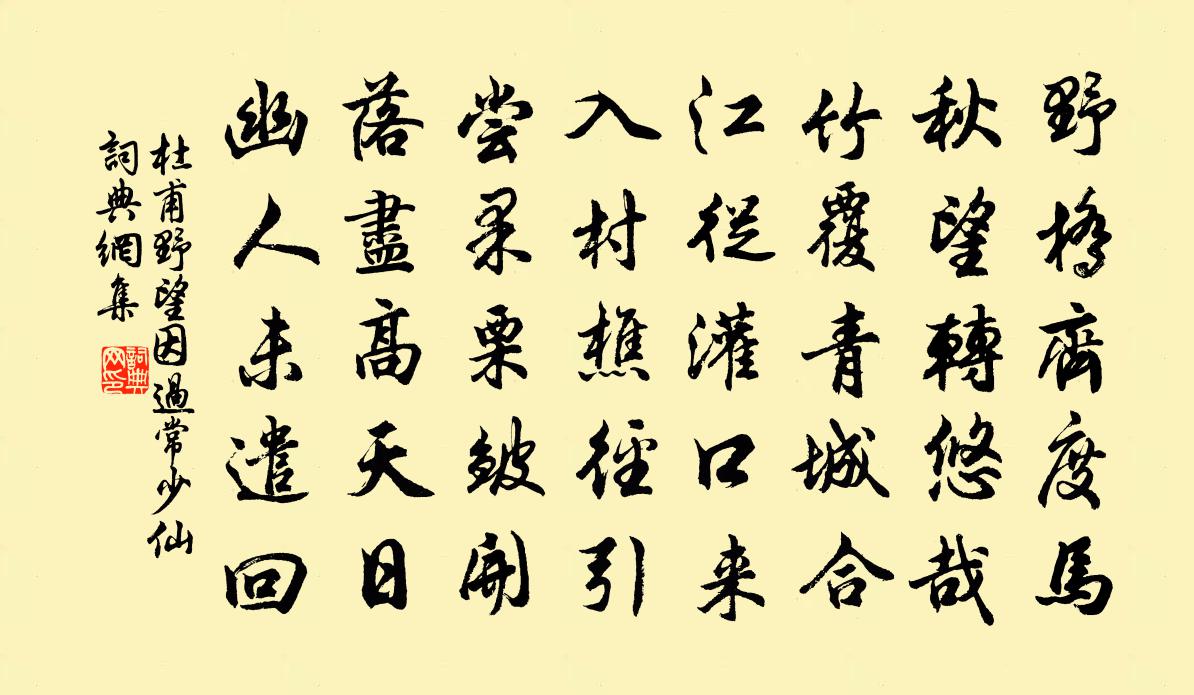 野橋齊度馬
秋望轉悠哉
竹覆青城合
江從灌口来
入村樵徑引
尝果栗皺開
落盡高天日
幽人未遣回
杜甫野望因過常少仙
詞典網集
詞典網印